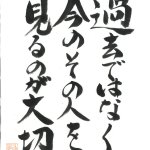 過去ではなく
今のその人を
見るのが大切